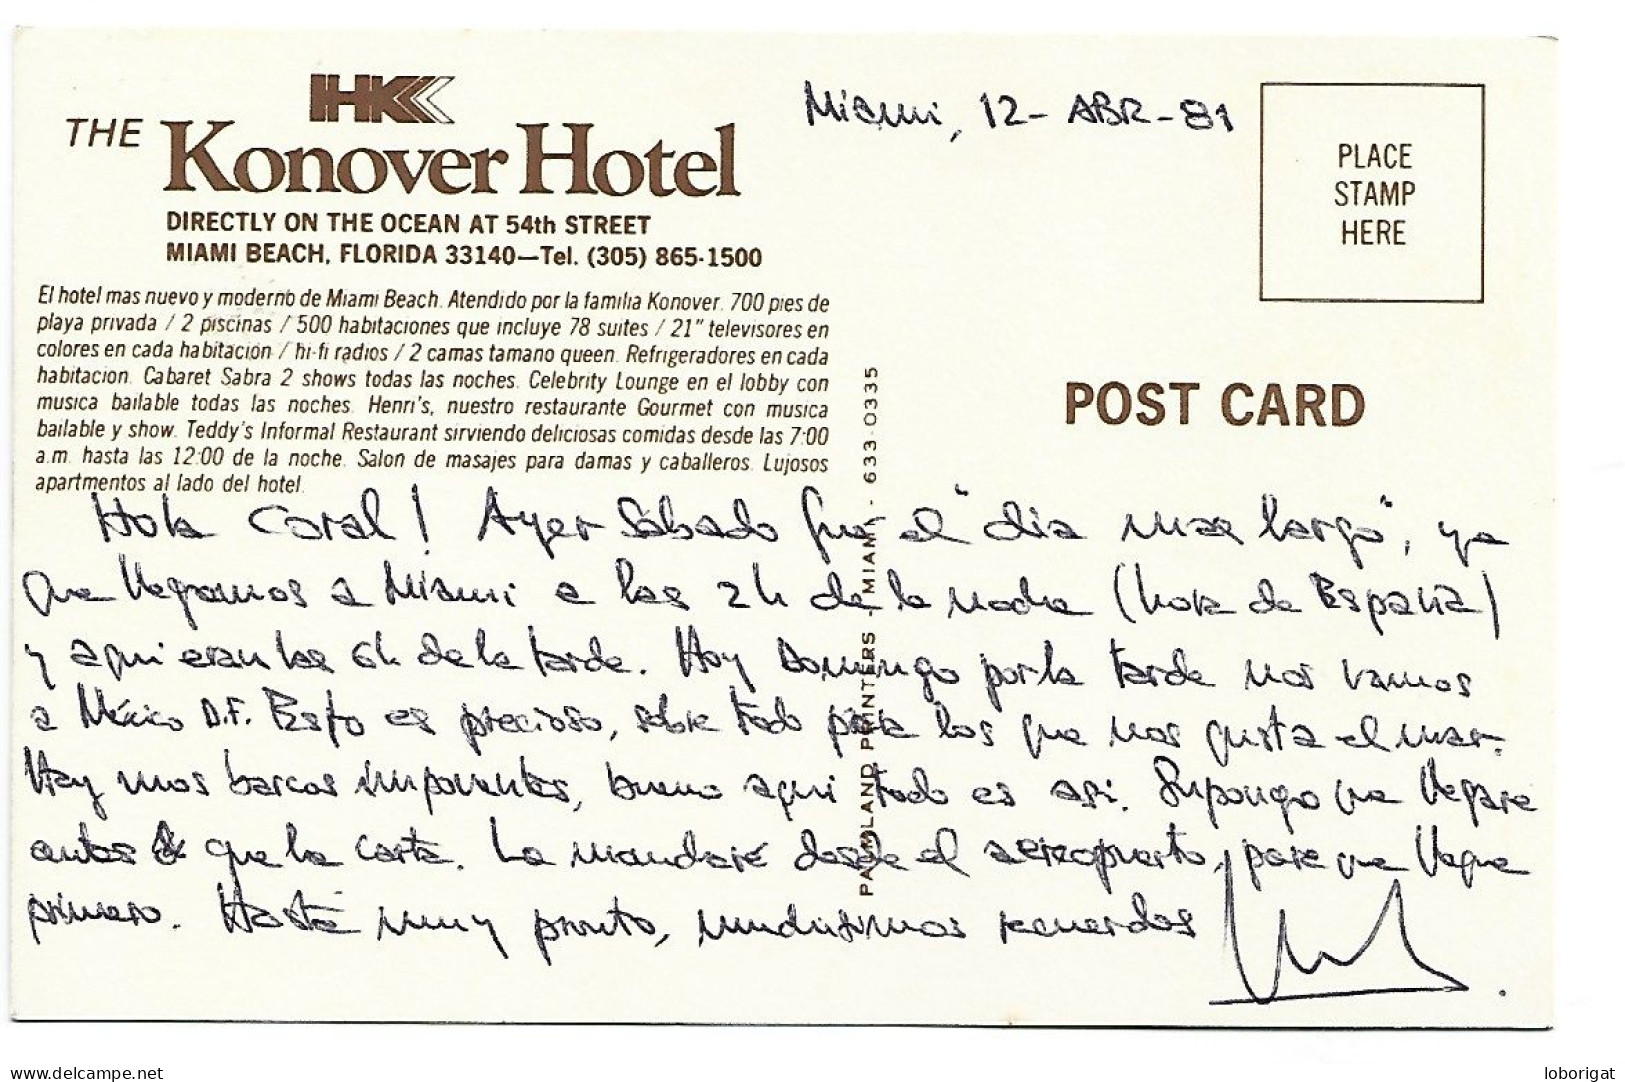 IHK
THE Konover Hotel
DIRECTLY ON THE OCEAN AT 54th STREET
MIAMI BEACH, FLORIDA 33140—Tel. (305) 865-1500
Miami, 12- ABR-81
PLACE
STAMP
HERE
El hotel mas nuevo y moderno de Miami Beach. Atendido por la familia Konover. 700 pies de
playa privada / 2 piscinas / 500 habitaciones que incluye 78 suites / 21" televisores en
colores en cada habitación / hi-fi radios / 2 camas tamano queen. Refrigeradores en cada
habitacion. Cabaret Sabra 2 shows todas las noches. Celebrity Lounge en el lobby con
musica bailable todas las noches. Henri's, nuestro restaurante Gourmet con musica
bailable y show. Teddy's Informal Restaurant sirviendo deliciosas comidas desde las 7:00
a.m. hasta las 12:00 de la noche. Salon de masajes para damas y caballeros. Lujosos
apartmentos al lado del hotel.
POST CARD
PALMLAND PRINTERS - MIAMI - 633-0335
Hola Coral! Ayer Sábado fué el "dia mas largo", ya
que llegamos a Miami a las 2h de la noche (hora de España)
y aqui eran las 6h. de la tarde. Hoy Domingo por la tarde nos vamos
a México D.F. Esto es precioso, sobre todo para los que nos gusta el mar.
Hay unos barcos imponentes, bueno aqui todo es asi. Supongo que llegare
antes que la carta. La mandaré desde el aeropuerto, para que llegue
primero. Hasta muy pronto, muchisimos recuerdos